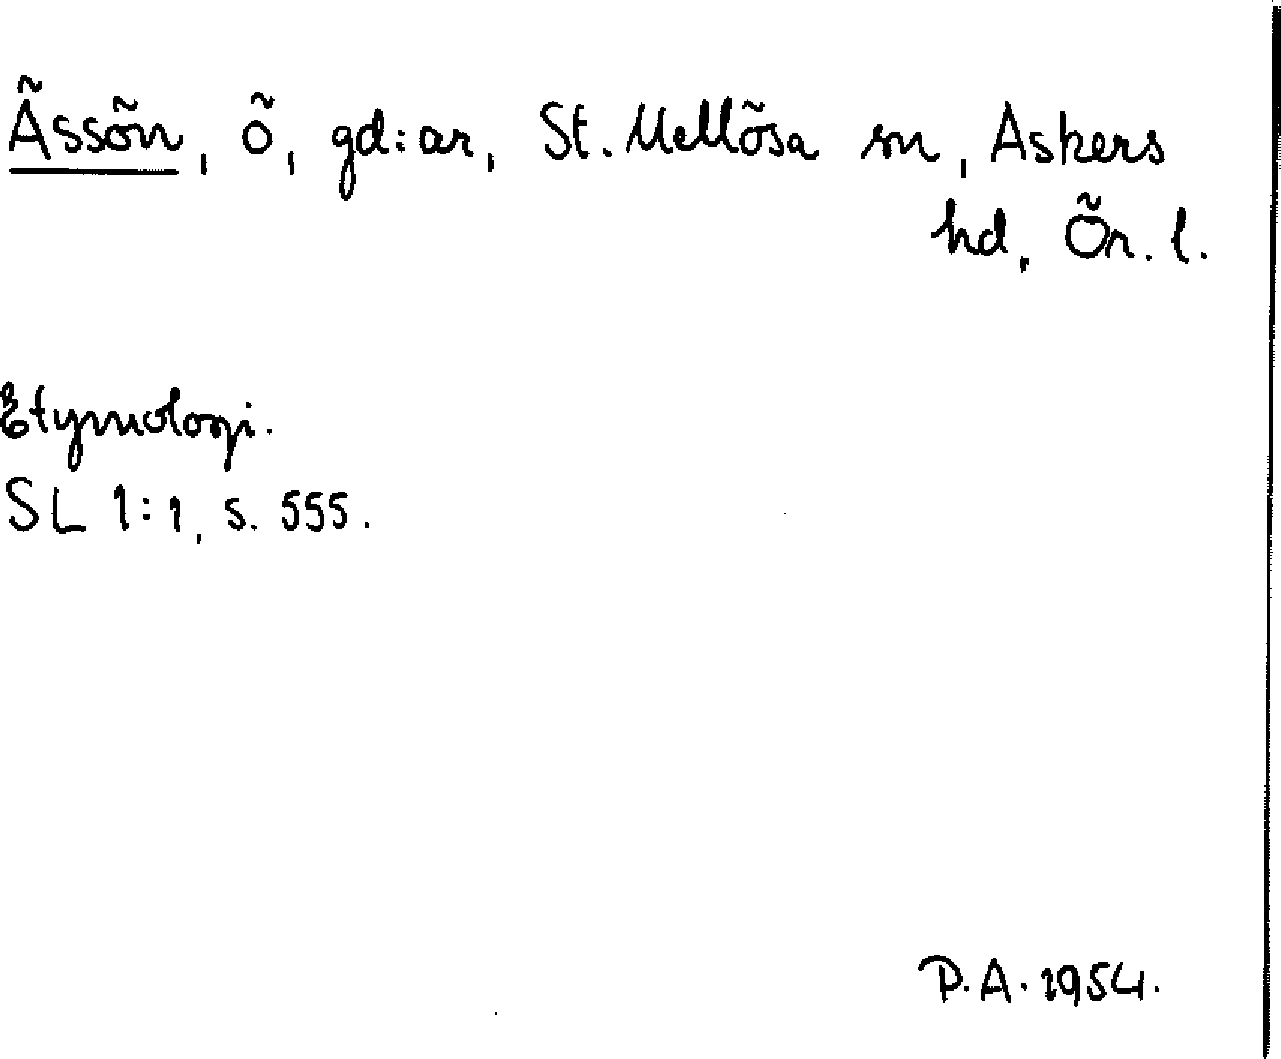 Ässön, ö, gd:ar, St. Mellösa sn, Askers
hd, Ör. l.
Etymologi.
SL 1:1, s. 555.
P.A. 1954.